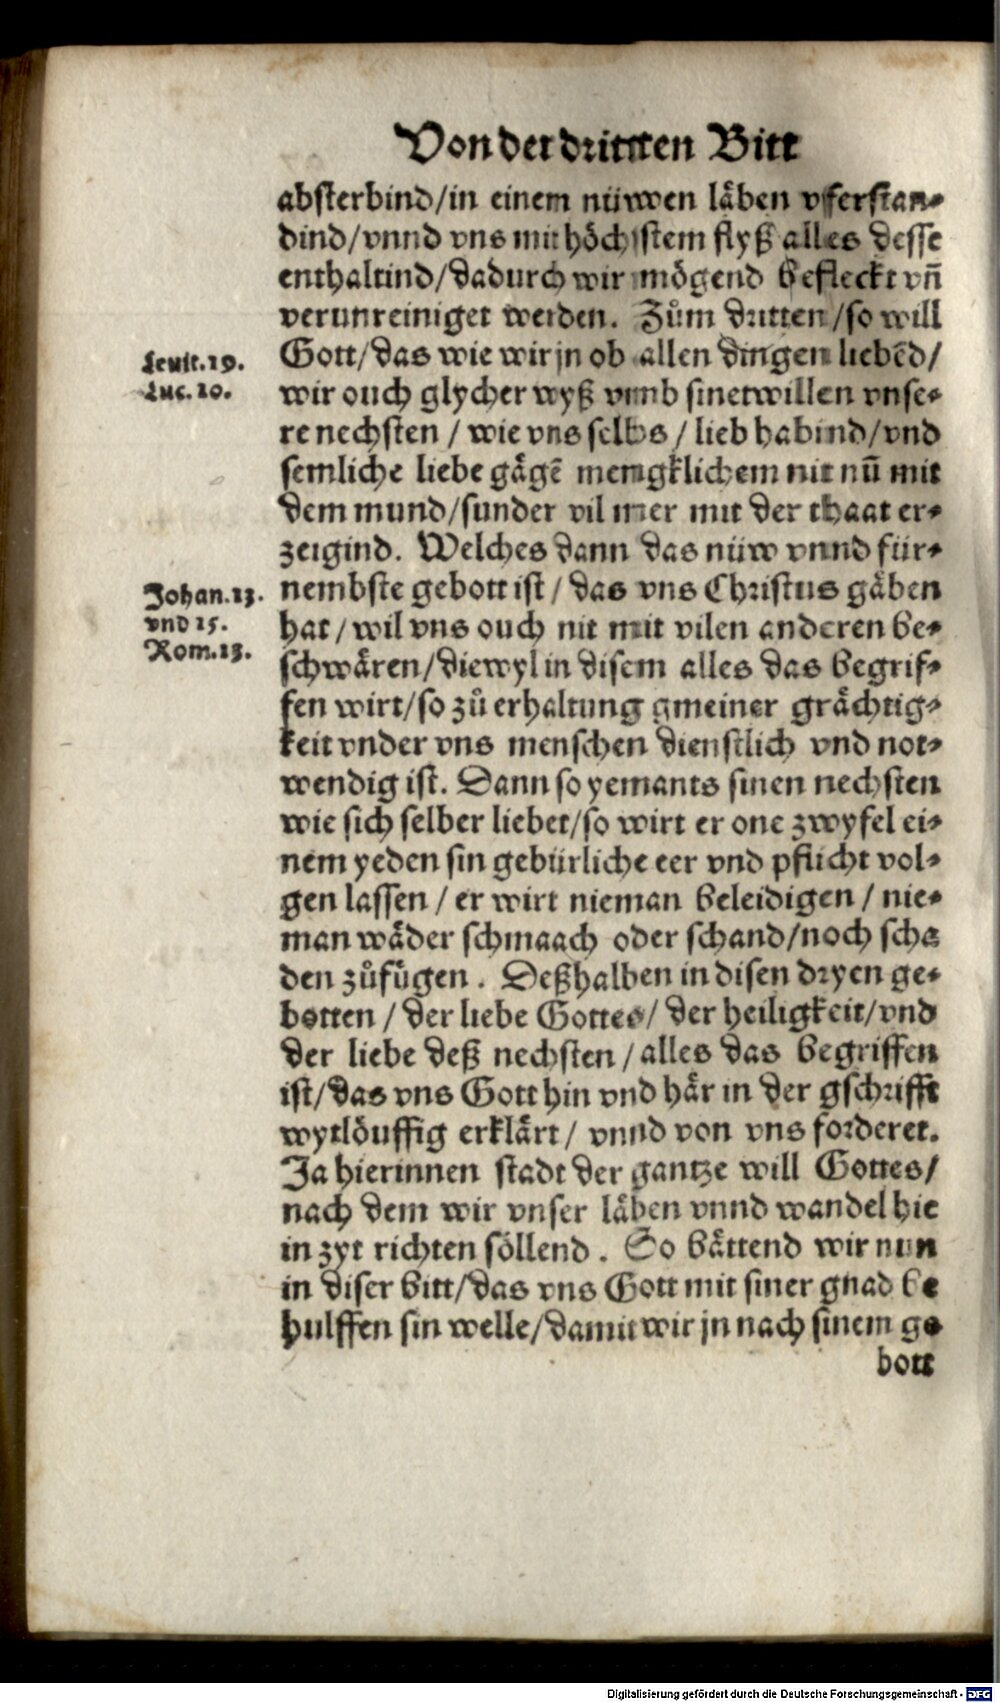 Von der dritten Bitt
absterbind/in einem nüwen läben vferstan-
dind/vnnd vns mit höchstem flyß alles desse
enthaltind/dadurch wir mögend befleckt vn̄
verunreiniget werden. Zům dritten/so will
Leuit.19.
Luc.10.
Gott/das wie wir jn ob allen dingen liebēd/
wir ouch glycher wyß vmb sinetwillen vnse-
re nechsten / wie vns selbs / lieb habind/vnd
semliche liebe gägē mengklichem nit nū mit
dem mund/sunder vil mer mit der thaat er-
zeigind. Welches dann das nüw vnnd für-
Johan.13.
vnd 15.
Rom.13.
nembste gebott ist / das vns Christus gäben
hat / wil vns ouch nit mit vilen anderen be-
schwären/diewyl in disem alles das begrif-
fen wirt/so zů erhaltung gmeiner grächtig-
keit vnder vns menschen dienstlich vnd not-
wendig ist. Dann so yemants sinen nechsten
wie sich selber liebet/so wirt er one zwyfel ei-
nem yeden sin gebürliche eer vnd pflicht vol-
gen lassen / er wirt nieman beleidigen / nie-
man wäder schmaach oder schand/noch scha
den zůfügen. Deßhalben in disen dryen ge-
botten / der liebe Gottes/ der heiligkeit/vnd
der liebe deß nechsten / alles das begriffen
ist/das vns Gott hin vnd här in der gschrifft
wytlöuffig erklärt / vnnd von vns forderet.
Ja hierinnen stadt der gantze will Gottes/
nach dem wir vnser läben vnnd wandel hie
in zyt richten söllend. So bättend wir nun
in diser bitt/das vns Gott mit siner gnad be
hulffen sin welle/damit wir jn nach sinem ge
bott
Digitalisierung gefördert durch die Deutsche Forschungsgemeinschaft - DFG